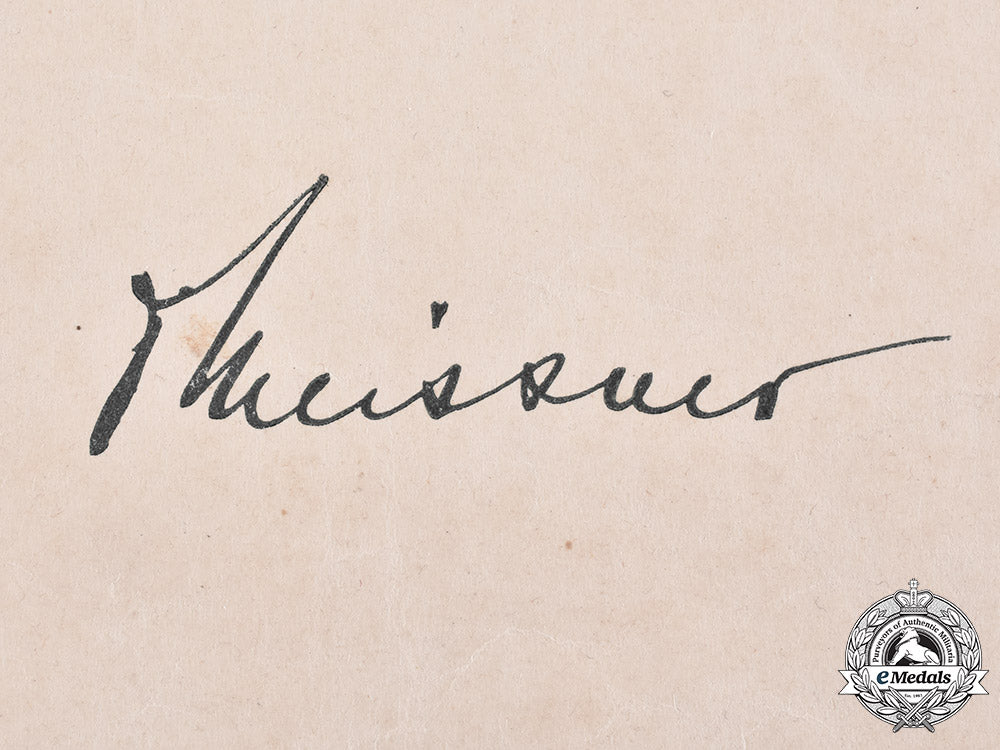 Meissner
Purveyors of Authentic Militaria
eMedals
Est. 1967